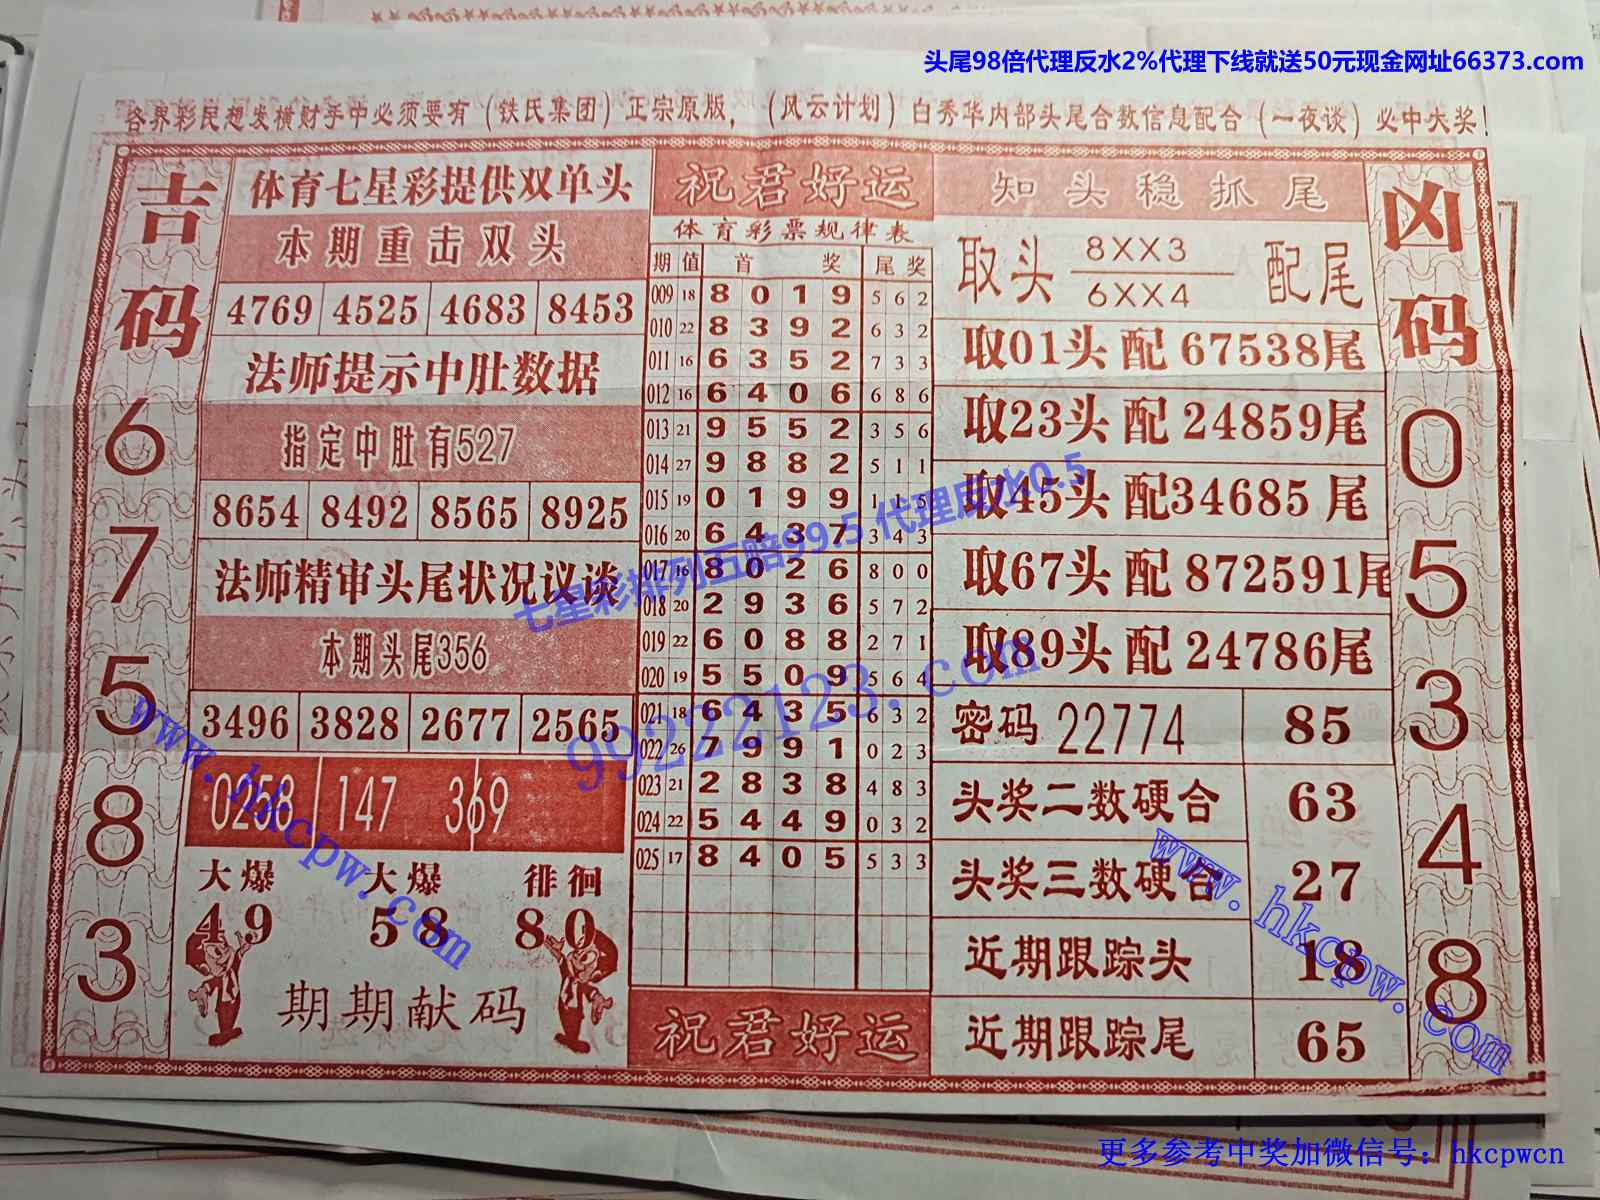 头尾98倍代理反水2%代理下线就送50元现金网址66373.com
各界彩民想发横财手中必须要有（铁氏集团）正宗原版，（风云计划）白秀华内部头尾合数信息配合（一夜谈）必中大奖！
吉码
6
7
5
8
3
体育七星彩提供双单头
本期重击双头
4769 4525 4683 8453
法师提示中肚数据
指定中肚有527
8654 8492 8565 8925
法师精审头尾状况议谈
本期头尾356
3496 3828 2677 2565
0258 147 369
大爆 大爆 徘徊
49 58 80
期期献码
祝君好运
体育彩票规律表
期 值 首 奖 尾 奖
009 18 8 0 1 9 5 6 2
010 22 8 3 9 2 6 3 2
011 16 6 3 5 2 7 3 3
012 16 6 4 0 6 6 8 6
013 21 9 5 5 2 3 5 6
014 27 9 8 8 2 5 1 1
015 19 0 1 9 9 1 1 5
016 20 6 4 3 7 3 4 3
017 16 8 0 2 6 8 0 0
018 20 2 9 3 6 5 7 2
019 22 6 0 8 8 2 7 1
020 19 5 5 0 9 5 6 4
021 18 6 4 3 5 6 3 2
022 26 7 9 9 1 0 2 3
023 21 2 8 3 8 4 8 3
024 22 5 4 4 9 0 3 2
025 17 8 4 0 5 5 3 3
祝君好运
知头稳抓尾
取头 8XX3 配尾
6XX4
取01头 配 67538尾
取23头 配 24859尾
取45头 配34685 尾
取67头 配 872591尾
取89头 配 24786尾
密码 22774 85
头奖二数硬合 63
头奖三数硬合 27
近期跟踪头 18
近期跟踪尾 65
凶码
0
5
3
4
8
七星彩排列五赔99.5 代理反水0.5
99222123.com
www.hkcpw.com
www.hkcpw.com
更多参考中奖加微信号：hkcpwcn